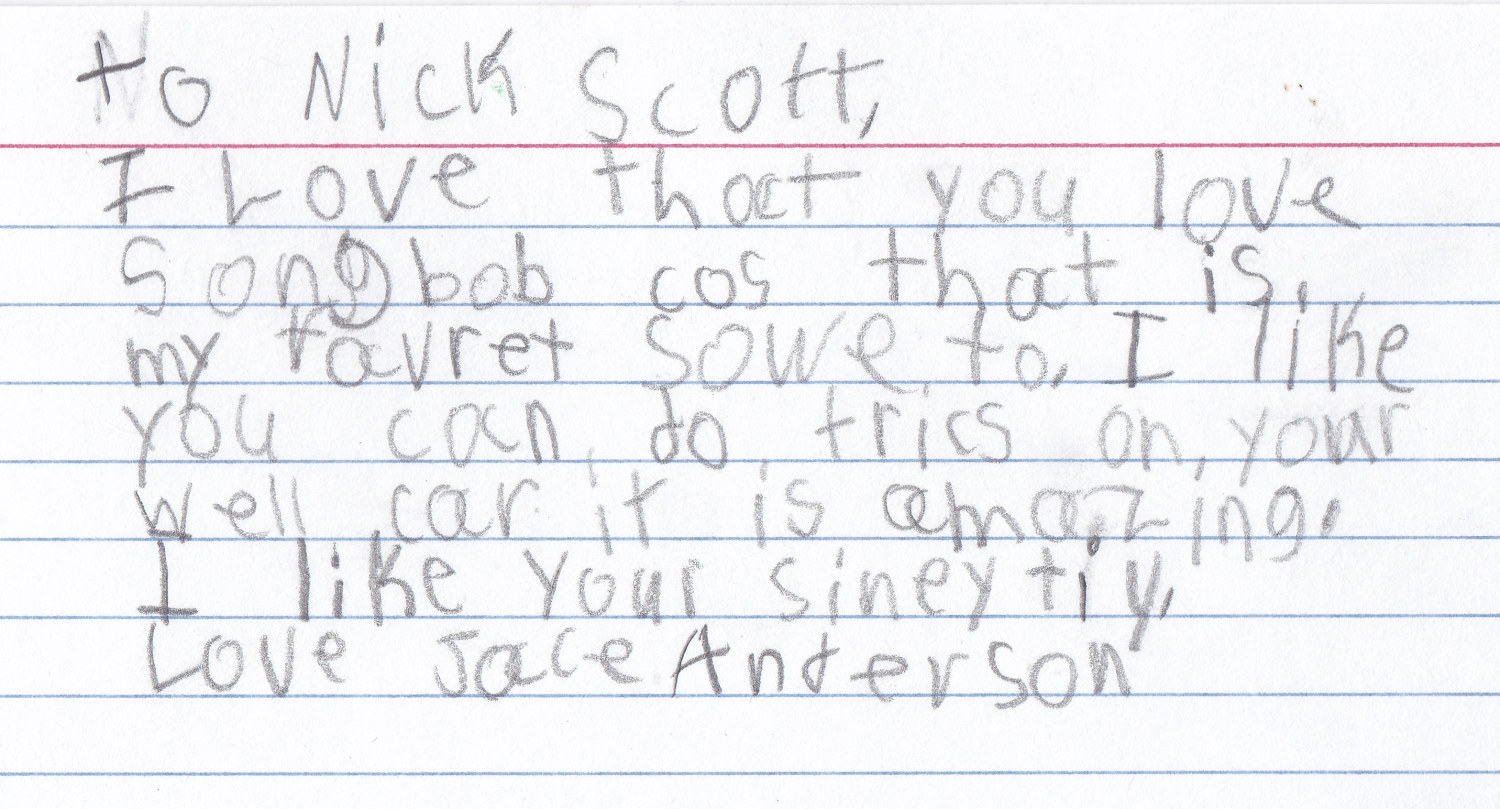 to Nick Scott,
I Love that you love
Songbob cos that is.
my favret sowe to. I like
you can do trics on your
well car it is amazing.
I like your siney tiy,
Love Jace Anderson